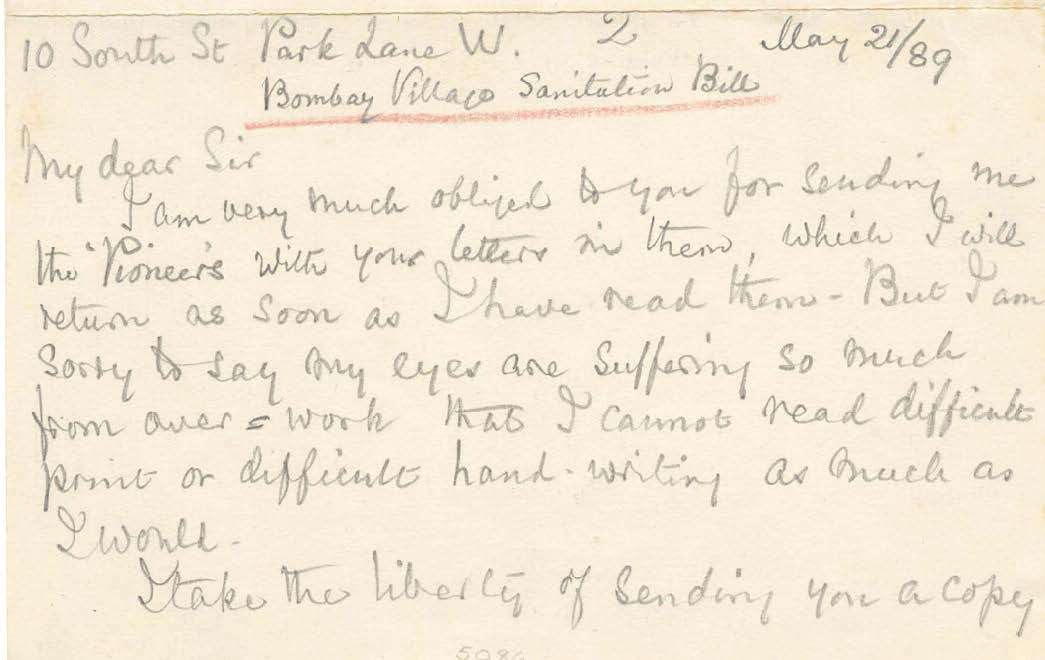 10 South St Park Lane W. 2 May 21/89
Bombay Village Sanitation Bill
My dear Sir
I am very much obliged to you for sending me
the 'Pioneers' with your letters in them, which I will
return as soon as I have read them - But I am
sorry to say my eyes are suffering so much
from over=work that I cannot read difficult
print or difficult hand-writing as much as
I would -
I take the liberty of sending you a copy